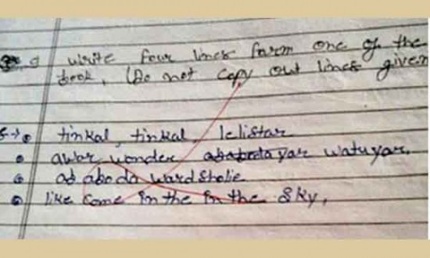 write four lines farm one of the
book, (Do not copy out lines given
tinkal, tinkal lelistar
awar wonder yar watuyar.
ad abo da ward sholie
like come in the in the sky,